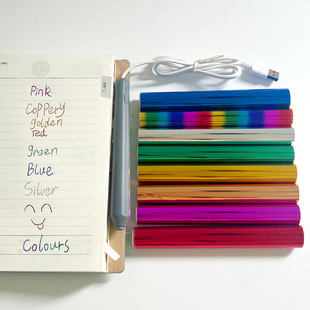 Pink
Coppery
golden
red
green
Blue
Silver
Colours